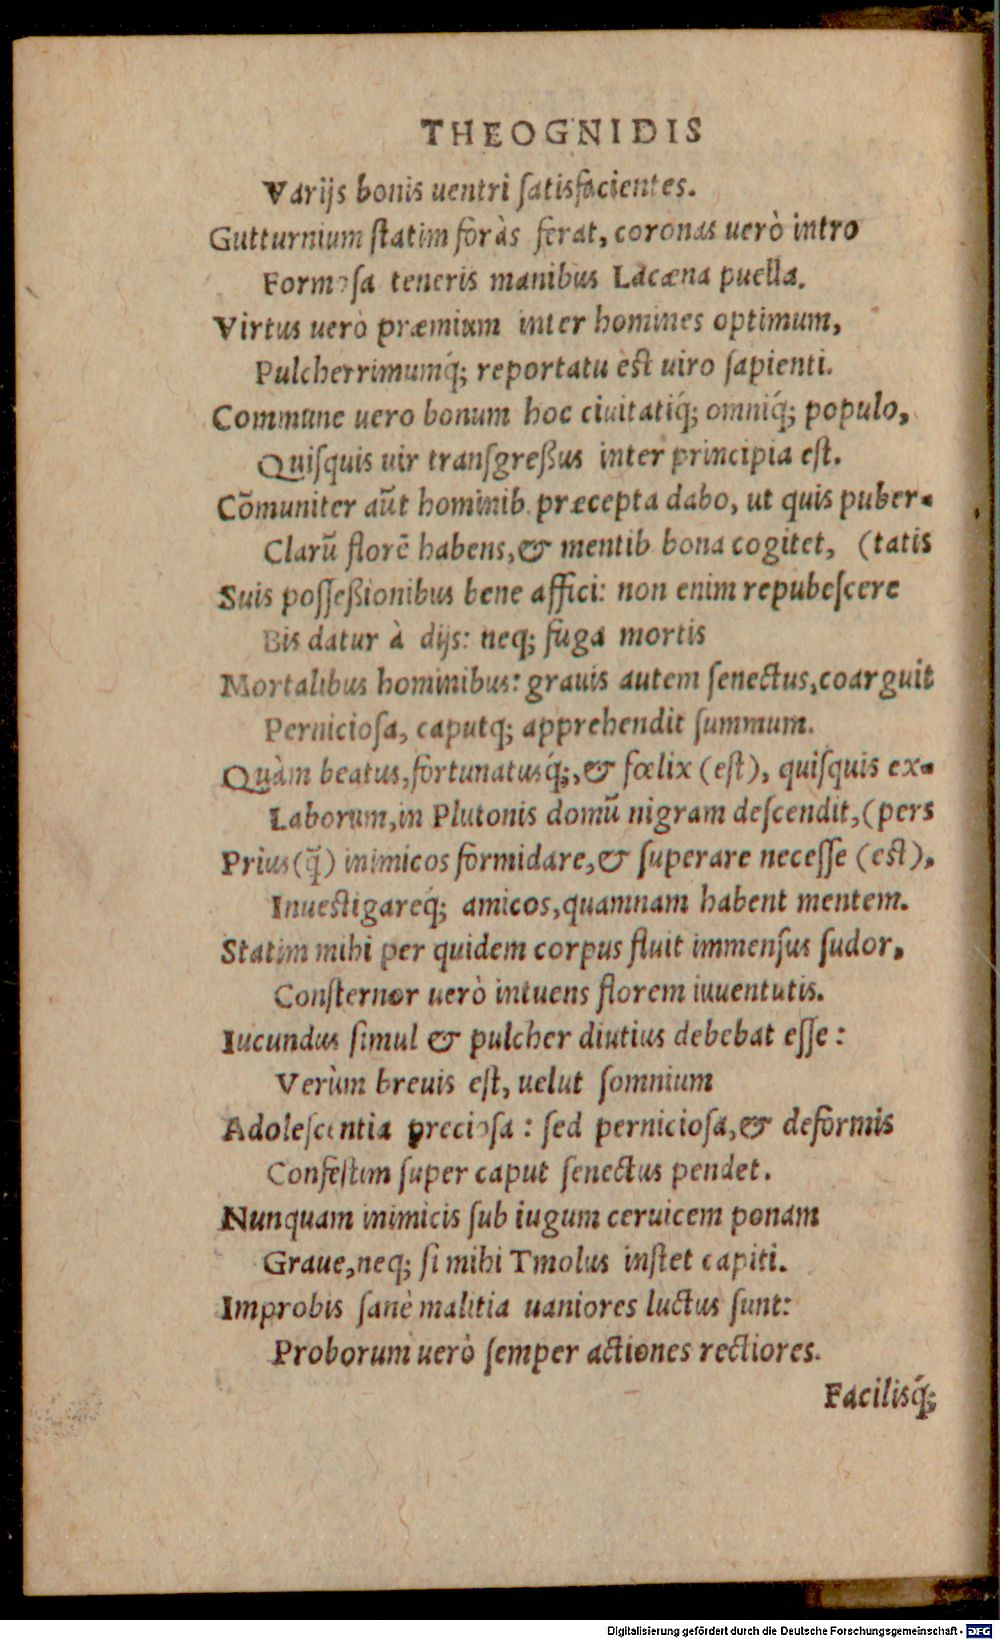 THEOGNIDIS
Varijs bonis uentri ſatisfacientes.
Gutturnium ſtatim foràs ferat, coronas uerò intro
Formoſa teneris manibus Lacæna puella.
Virtus uerò præmium inter homines optimum,
Pulcherrimumq́; reportatu est uiro ſapienti.
Commune uero bonum hoc ciuitatiq́; omniq́; populo,
Quiſquis uir tranſgreßus inter principia eſt.
Cōmuniter aūt hominib. præcepta dabo, ut quis puber-
Clarū florē habens, & mentib bona cogitet, (tatis
Suis poſſeßionibus bene affici: non enim repubeſcere
Bis datur à dijs: neq; fuga mortis
Mortalibus hominibus: grauis autem ſenectus, coarguit
Pernicioſa, caputq; apprehendit ſummum.
Quàm beatus, fortunatusq́;, & fœlix (eſt), quiſquis ex-
Laborum, in Plutonis domū nigram deſcendit, (pers
Prius (q̃) inimicos formidare, & ſuperare neceſſe (est),
Inuestigareq́; amicos, quamnam habent mentem.
Statim mihi per quidem corpus fluit immenſus ſudor,
Conſternor uerò intuens florem iuuentutis.
Iucundus ſimul & pulcher diutius debebat eſſe:
Verùm breuis eſt, uelut ſomnium
Adoleſcentia precioſa: ſed pernicioſa, & deformis
Confeſtim ſuper caput ſenectus pendet.
Nunquam inimicis ſub iugum ceruicem ponam
Graue, neq; ſi mihi Tmolus inſtet capiti.
Improbis ſanè malitia uaniores luctus ſunt:
Proborum uerò ſemper actiones rectiores.
Facilisq́;
Digitalisierung gefördert durch die Deutsche Forschungsgemeinschaft - DFG